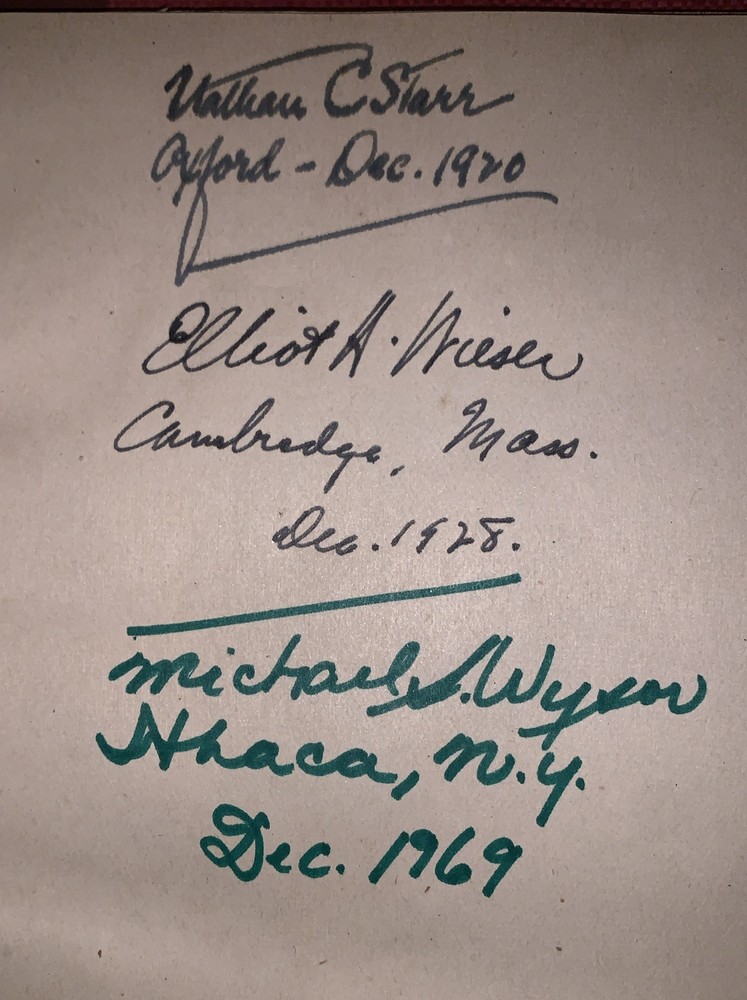 Nathan C Starr
Oxford - Dec. 1920
Elliot A. Wieser
Cambridge, Mass.
Dec. 1928.
Michael S. Wysor
Ithaca, N.Y.
Dec. 1969